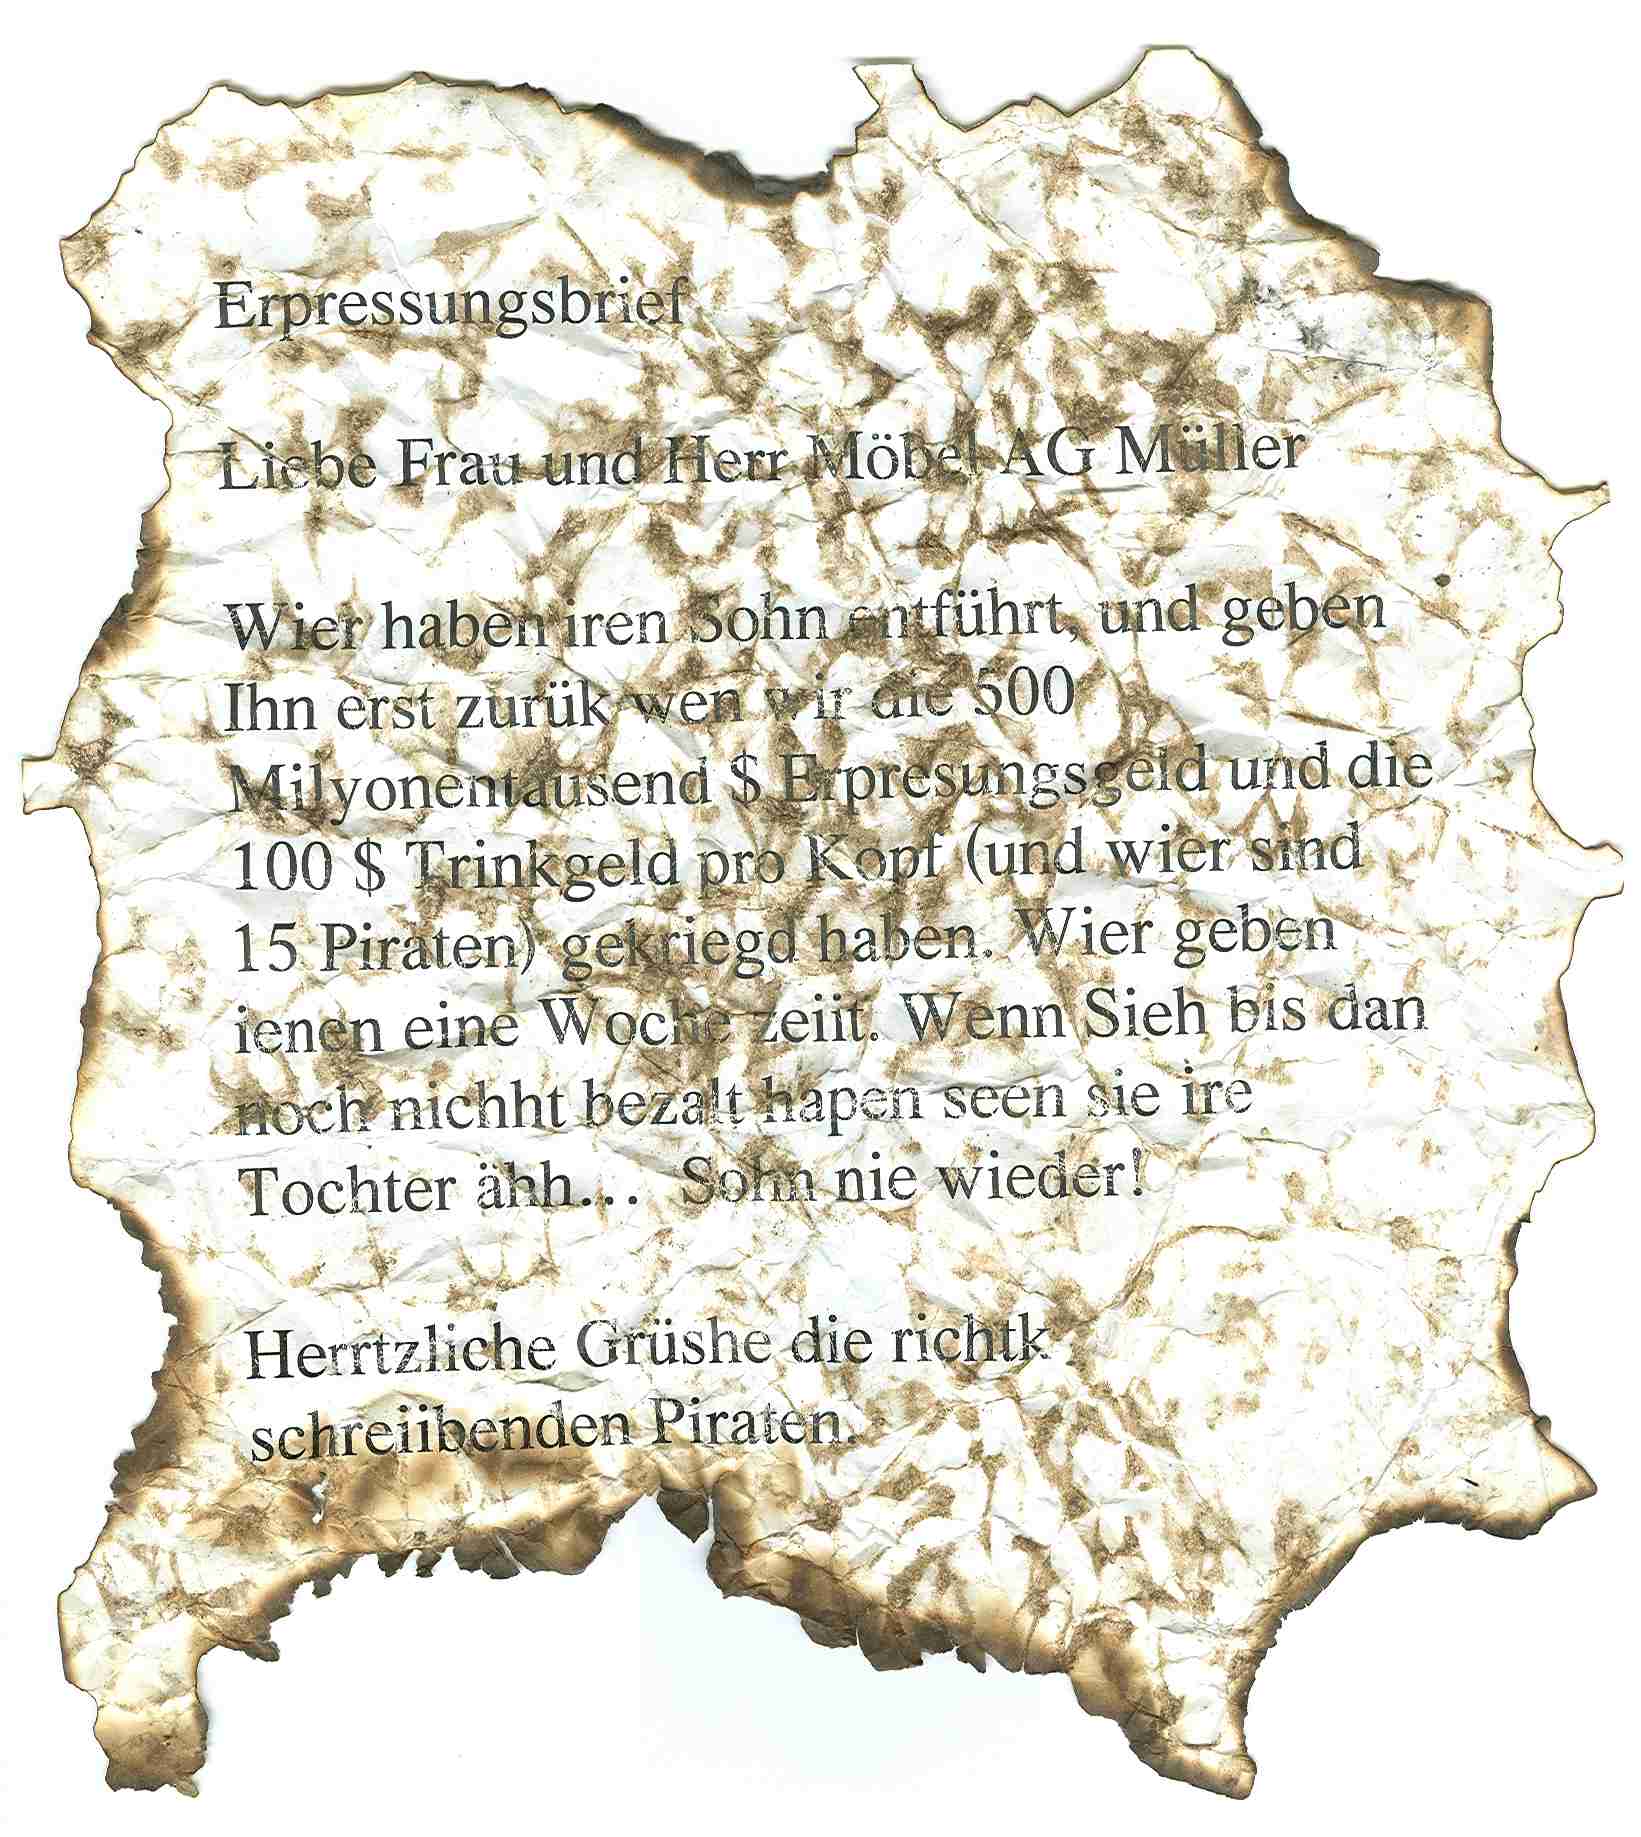 Erpressungsbrief
Liebe Frau und Herr Möbel AG Müller
Wier haben iren Sohn entführt, und geben
Ihn erst zurük wen wir die 500
Milyonentausend $ Erpresungsgeld und die
100 $ Trinkgeld pro Kopf (und wier sind
15 Piraten) gekriegd haben. Wier geben
ienen eine Woche zeiit. Wenn Sieh bis dan
noch nichht bezalt hapen seen sie ire
Tochter ähh... Sohn nie wieder!
Herrtzliche Grüshe die richtk
schreiibenden Piraten.